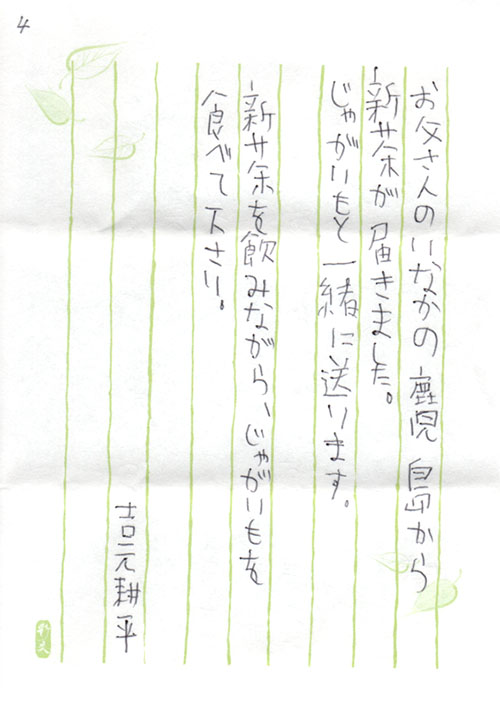 4
お父さんのいなかの鹿児島から
新茶が届きました。
じゃがいもと一緒に送ります。
新茶を飲みながら、じゃがいもを
食べて下さい。
吉元耕平